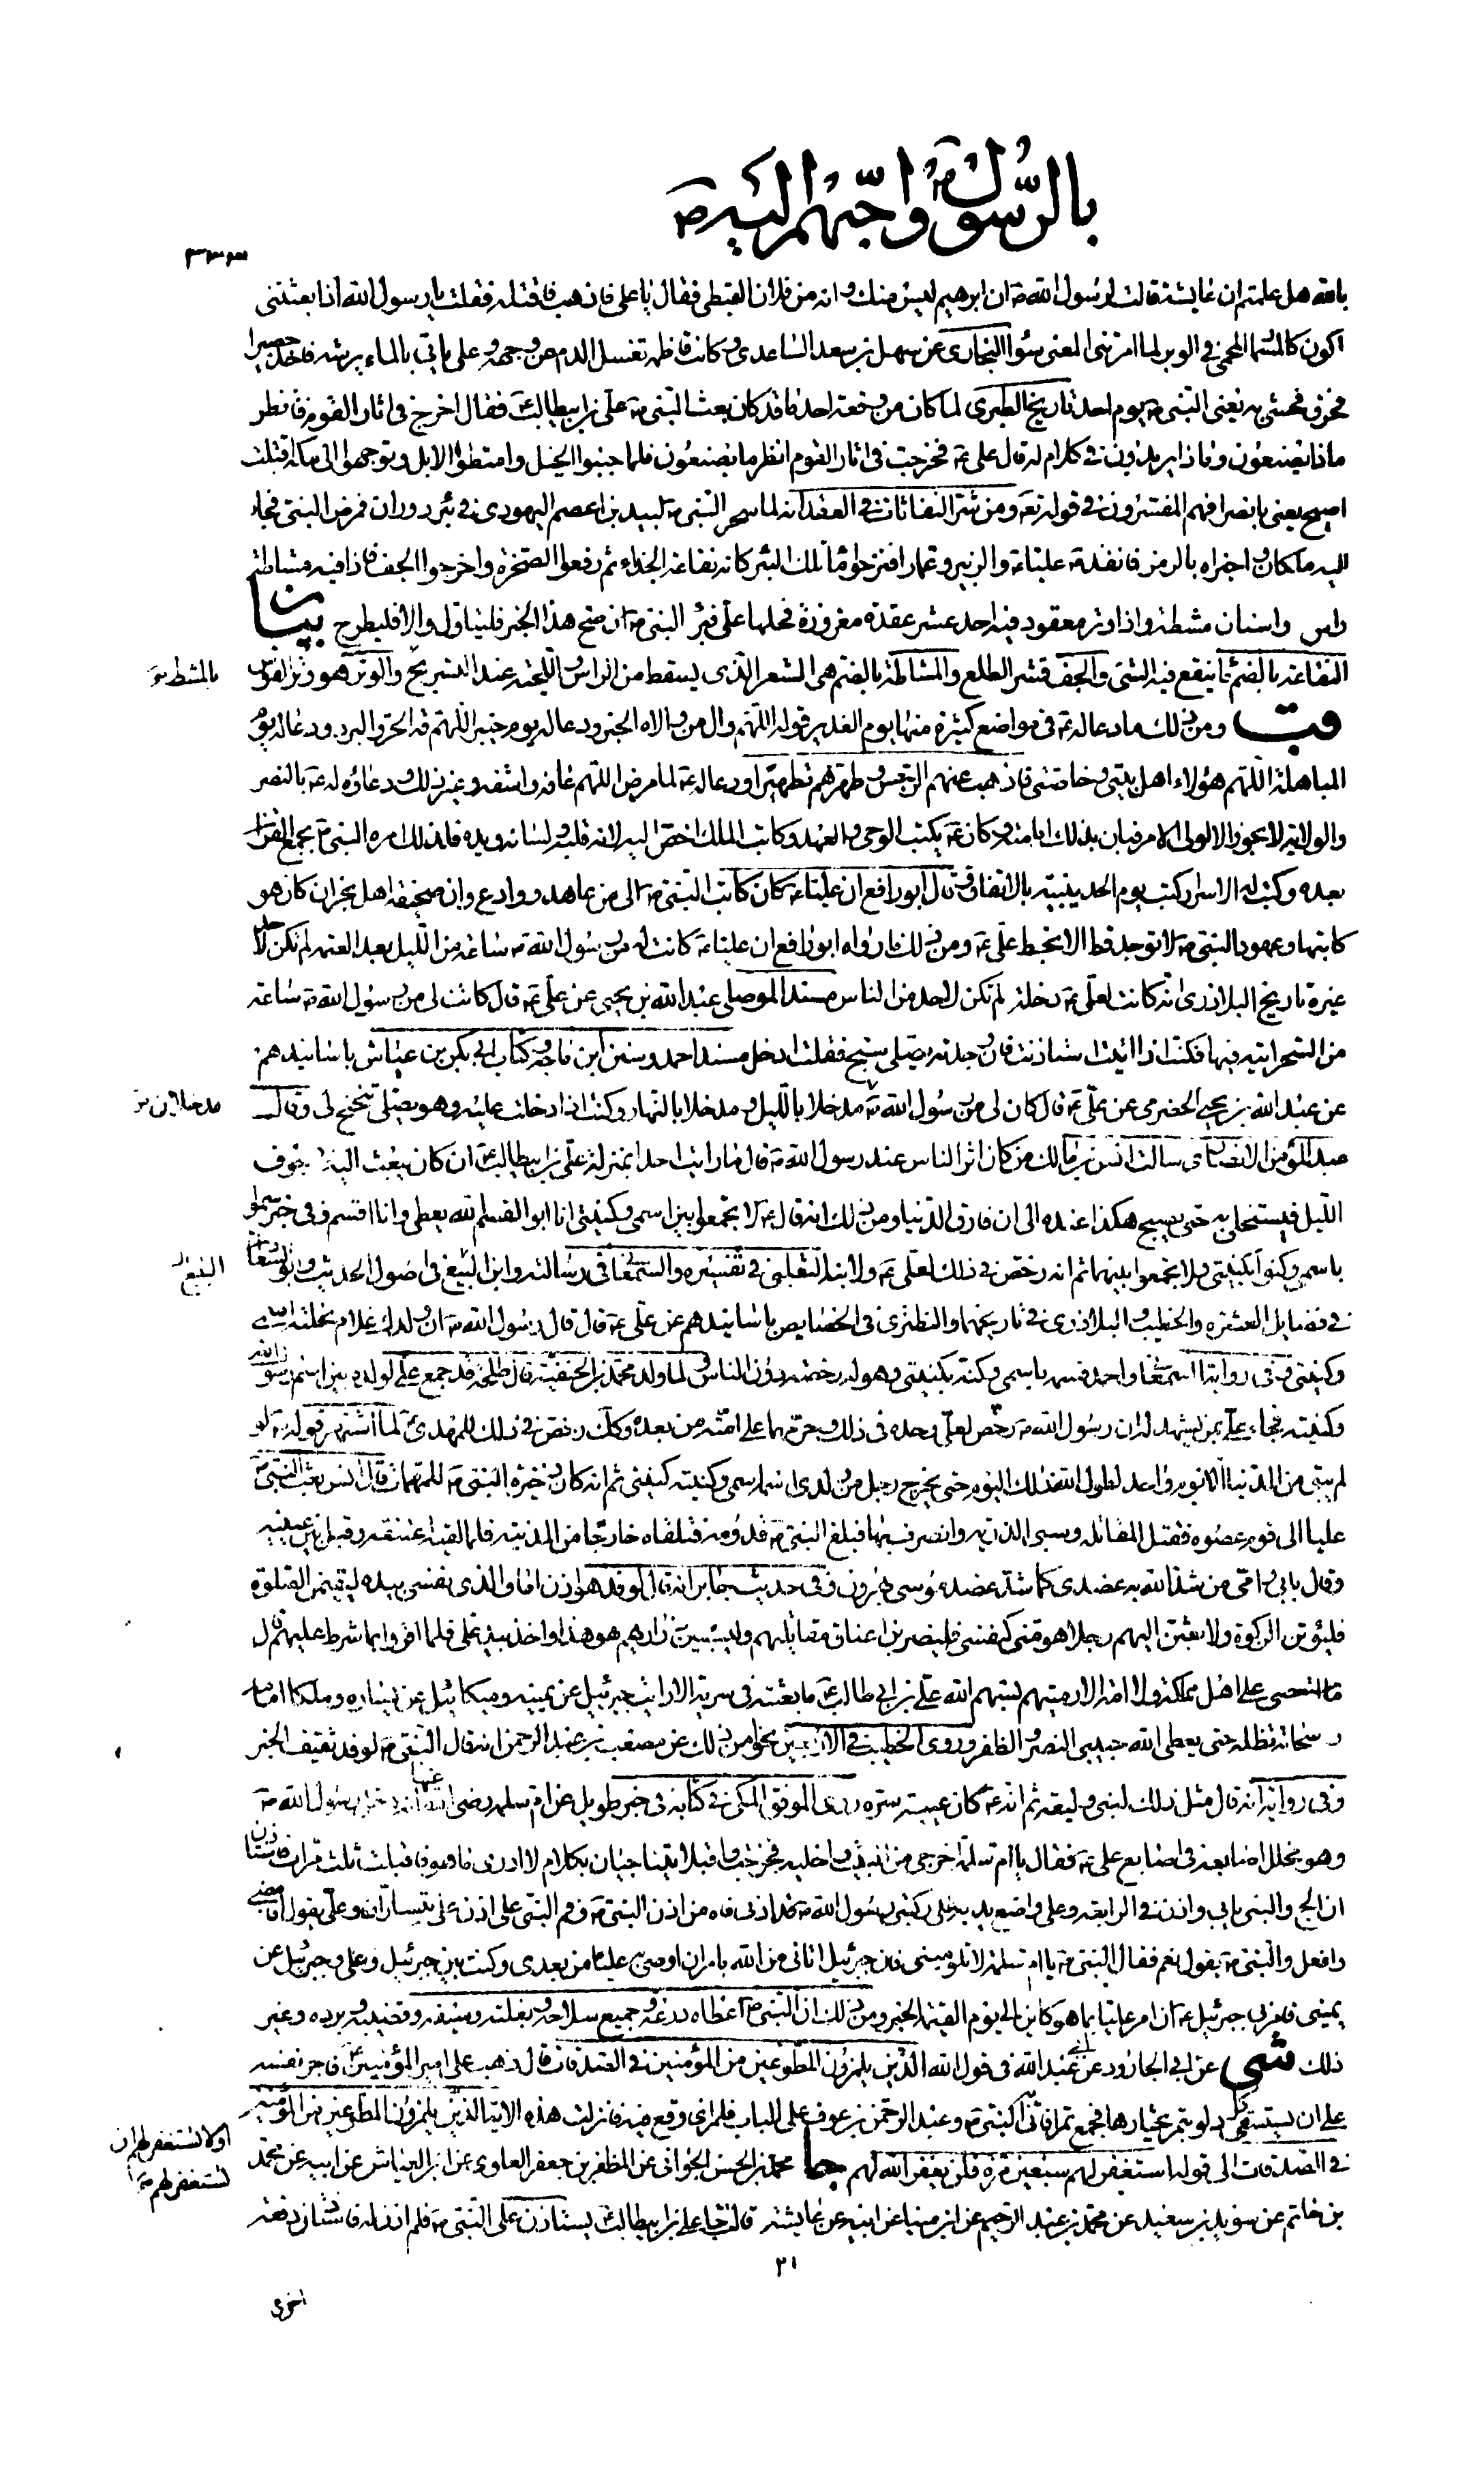 بالرسول ص واحبهم اليه ص
٣٣٣
بالله هل علمتم ان عايشة قالت لرسول الله ص ان ابرهيم ليس منك وانه من فلان القبطي فقال يا على فاذهب فاقتله فقلت يا رسول الله اذا بعثتنى
اكون كالمسمار المحمى فى الوبر لما امرتنى المعنى سواء البخارى عن سهل بن سعد الساعدى وكانت فاطمة تغسل الدم عن وجهه وعلى ياتى بالماء يرشه فاخذ حصيرا
فحرق فحشى به يعنى النبى ص يوم احد تاريخ الطبرى لما كان من وقعة احد ما قد كان بعث النبى ص على بن ابيطالب ع فقال اخرج فى اثار القوم فانظر
ماذا يصنعون وماذا يريدون فى كلام له قال على ع فخرجت فى اثار القوم انظر ما يصنعون فلما جنبوا الخيل وامتطوا الابل وتوجهوا الى مكة اقبلت
اصيح يعنى بانصرافهم المفسرون فى قوله تع ومن شر النفاثات فى العقد انه لما سحر النبى ص لبيد بن اعصم اليهودى فى بئر دوران فمرض النبى فجاء
اليه ملكان واخبراه بالرمز فانفذ ص عليا ع والزبير وعمار افنزحوا ماء تلك البئر كانه نقاعة الحناء ثم رفعوا الصخرة واخرجوا الجف فاذا فيه مشاطة
راس واسنان مشطة واذا وتر معقود فيه احد عشر عقدة مغروزة فحلها على فبرئ النبى ص ان صح هذا الخبر فليتاول والا فليطرح بيان
النقاعة بالضم ما ينقع فيه الشئ والجف قشر الطلع والمشاطة بالضم هى الشعر الذى يسقط من الراس واللحية عند التسريح والوتر هو وتر القوس
بالمشط ص
قب ومن ذلك ما دعا له ص فى مواضع كثيرة منها يوم الغدير قوله اللهم وال من والاه الخبر ودعا له يوم خيبر اللهم قه الحر والبرد ودعا له يوم
المباهلة اللهم هؤلاء اهل بيتى وخاصتى فاذهب عنهم الرجس وطهرهم تطهيرا ودعا له ع لما مرض اللهم عافه واشفه وغير ذلك ودعاؤه له ع بالنصر
والولاية لا يجوز الا لولى الامر فبان بذلك امامته وكان ع يكتب الوحى والعهد وكاتب الملك اخص اليه لانه قلبه ولسانه ويده فلذلك امره النبى ص بجمع القران
بعده وكتب له الاسرار كتب يوم الحديبية بالاتفاق وقال ابورافع ان عليا ع كان كاتب النبى ص الى من عاهد ووادع وان صحيفة اهل نجران كان هو
كاتبها وعهود النبى ص لا توجد قط الا بخط على ع ومن ذلك ما رواه ابورافع ان عليا ع كانت له من رسول الله ص ساعة من الليل بعد العتمة لم تكن لاحد
غيره تاريخ البلاذرى انه كانت لعلى ع دخلة لم تكن لاحد من الناس مسند الموصلى عبد الله بن يحيى عن على ع قال كانت لى من رسول الله ص ساعة
من السحر اتيه فيها فكنت اذا اتيت استاذنت فان وجدته يصلى سبح فقلت ادخل مسند احمد وسنن ابن ماجة وكتاب ابى بكر بن عياش باسانيدهم
عن عبد الله بن يحيى الحضرمى عن على ع قال كان لى من رسول الله ص مدخلا بالليل ومدخلا بالنهار وكنت اذا دخلت عليه وهو يصلى تنحنح لى وقال
مدخلان
عبد المؤمن الانصارى سالت انس بن مالك من كان اثر الناس عند رسول الله ص قال ما رايت احدا بمنزلة على بن ابيطالب ع ان كان يبعث اليه جوف
الليل فيستخلى به حتى يصبح هكذا عنده الى ان فارق الدنيا ومن ذلك انه قال ص لا تجمعوا بين اسمى وكنيتى انا ابوالقسم الله يعطى وانا اقسم وفى خبر سموا
باسمى وكنوا بكنيتى ولا تجمعوا بينهما ثم انه رخص فى ذلك لعلى ع ولابنه الثعلبى فى تفسيره والسمعانى فى رسالته وابن البيع فى اصول الحديث وابوالسعادات
البيع
فى فضايل العشرة والخطيب والبلاذرى فى تاريخهما والنطنزى فى الخصايص باسانيدهم عن على ع قال قال رسول الله ص ان ولد لك غلام نحلته اسمى
وكنيتى وفى رواية السمعانى واحمد فسمه باسمى وكنه بكنيتى وهو له رخصة دون الناس ولما ولد محمد بن الحنفية قال طلحة قد جمع على لولده بين اسم رسول الله
وكنيته فجاء على بمن يشهد له ان رسول الله ص رخص لعلى وحده فى ذلك وحرمهما على امته من بعده وكك رخص فى ذلك للمهدى ع لما اشتهر قوله ص لو
لم يبق من الدنيا الا يوم واحد لطول الله ذلك اليوم حتى يخرج رجل من ولدى اسمه اسمى وكنيته كنيتى ثم انه كان ذخيرة النبى ص للمهمات قال انس بعث النبى ص
عليا الى قوم عصوه فقتل المقاتلة وسبى الذرية وانصرف بها فبلغ النبى ص قدومه فتلقاه خارجا من المدينة فلما لقيه اعتنقه وقبل بين عينيه
وقال بابى وامى من شد الله به عضدى كما شد عضد موسى بهرون وفى حديث جابر انه قال لوفد هوازن اما والذى نفسى بيده ليقيمن الصلوة
وليؤتن الزكوة ولابعثن اليهم رجلا هو منى كنفسى فليضربن اعناق مقاتليهم وليسبين ذراريهم هو هذا واخذ بيد على فلما اقروا بما شرط عليهم قال
ما استعصى على اهل مملكة ولا امة الا رميتهم بسهم الله على بن ابى طالب ع ما بعثته فى سرية الا رايت جبرئيل عن يمينه وميكائيل عن يساره وملكا امامه
وسحابة تظله حتى يعطى الله حبيبى النصر والظفر وروى الخطيب فى الاربعين نحوا من ذلك عن مصعب بن عبد الرحمن انه قال النبى ص لوفد ثقيف الخبر
وفى رواية انه قال مثل ذلك لبنى وليعة ثم انه ع كان عيبة سره روى الموفق المكى فى كتابه فى خبر طويل عن ام سلمة رضى الله عنها انه دخل رسول الله ص
وهو مخلل اصابعه فى اصابع على ع فقال يا ام سلمة اخرجى من البيت واخليه فخرجت واقبلا يتناجيان بكلام لا ادرى ما هو فاقبلت ثلث مرات فاستاذن
ان الج والنبى يابى واذن فى الرابعة وعلى واضع يديه على ركبتى رسول الله ص قد ادنى فاه من اذن النبى ص وفم النبى على اذن على يتساران وعلى يقول افامضى
وافعل والنبى ص يقول نعم فقال النبى ص يا ام سلمة لا تلومينى فان جبرئيل اتانى من الله يامر ان اوصى به عليا من بعدى وكنت بين جبرئيل وعلى وجبرئيل عن
يمينى فامرنى جبرئيل ع ان امر عليا بما هو كاين الى يوم القيمة الخبر ومن ذلك ان النبى ص اعطاه درعه وجميع سلاحه وبغلته وسيفه وقضيبه وبرده وغير
ذلك شى عن ابى الجارود عن ابى عبد الله فى قول الله الذين يلمزون المطوعين من المؤمنين فى الصدقات قال ذهب على امير المؤمنين ع فاجر نفسه
على ان يستقى كل دلو بتمر يختارها فجمع تمرا فاتى به النبى ص وعبد الرحمن بن عوف على الباب فلمزه اى وقع فيه فانزلت هذه الاية الذين يلمزون المطوعين من المؤمنين
فى الصدقات الى قوله استغفر لهم سبعين مرة فلن يغفر الله لهم جا محمد بن الحسن الجوانى عن المظفر بن جعفر العلوى عن ابن العياشى عن ابيه عن محمد
اولا تستغفر لهم ان
تستغفر لهم ص
بن حاتم عن سويد بن سعيد عن محمد بن عبد الرحيم عن ابن مينا عن ابيه عن عايشة قالت جاء على بن ابيطالب ع يستاذن على النبى ص فلم ياذن له فاستاذن دفعة
٢١
اخرى